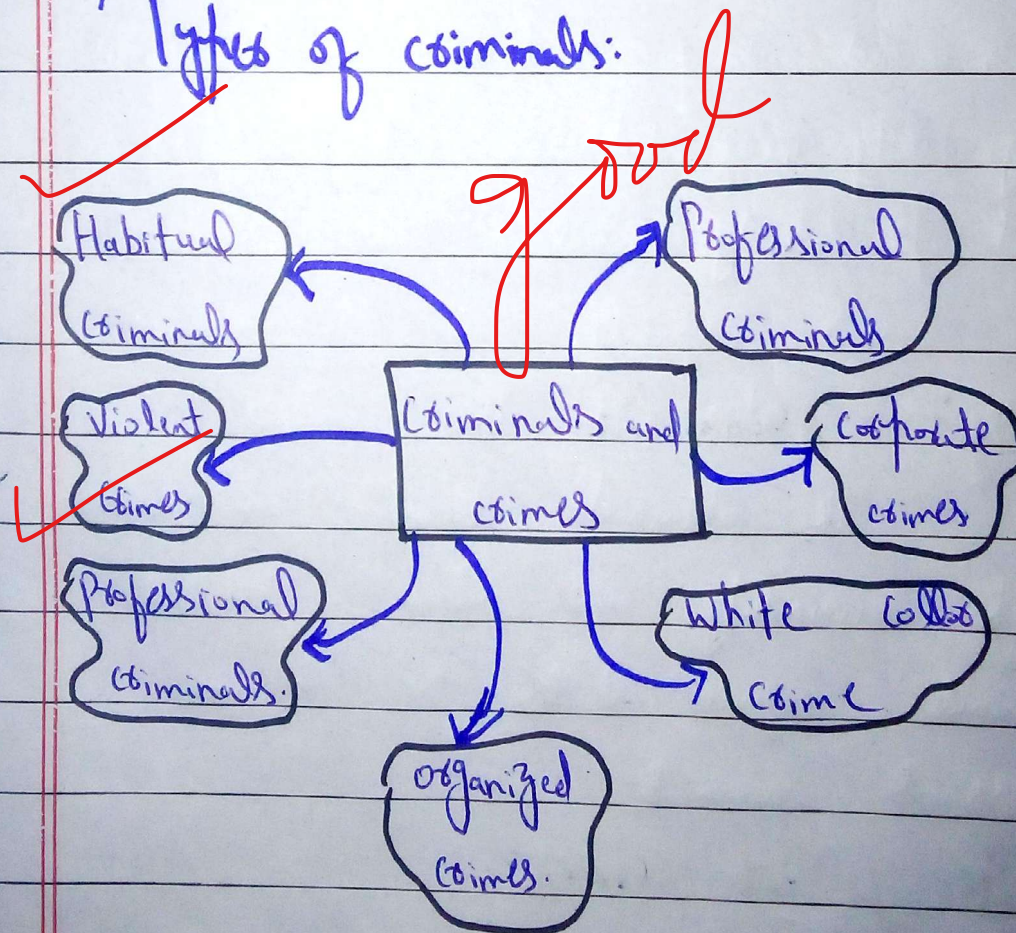 Types of criminals:
good
Habitual
criminals
Professional
criminals
Criminals and
crimes
Violent
crimes
Corporate
crimes
Professional
criminals.
White Collar
Crime
Organized
Crimes.